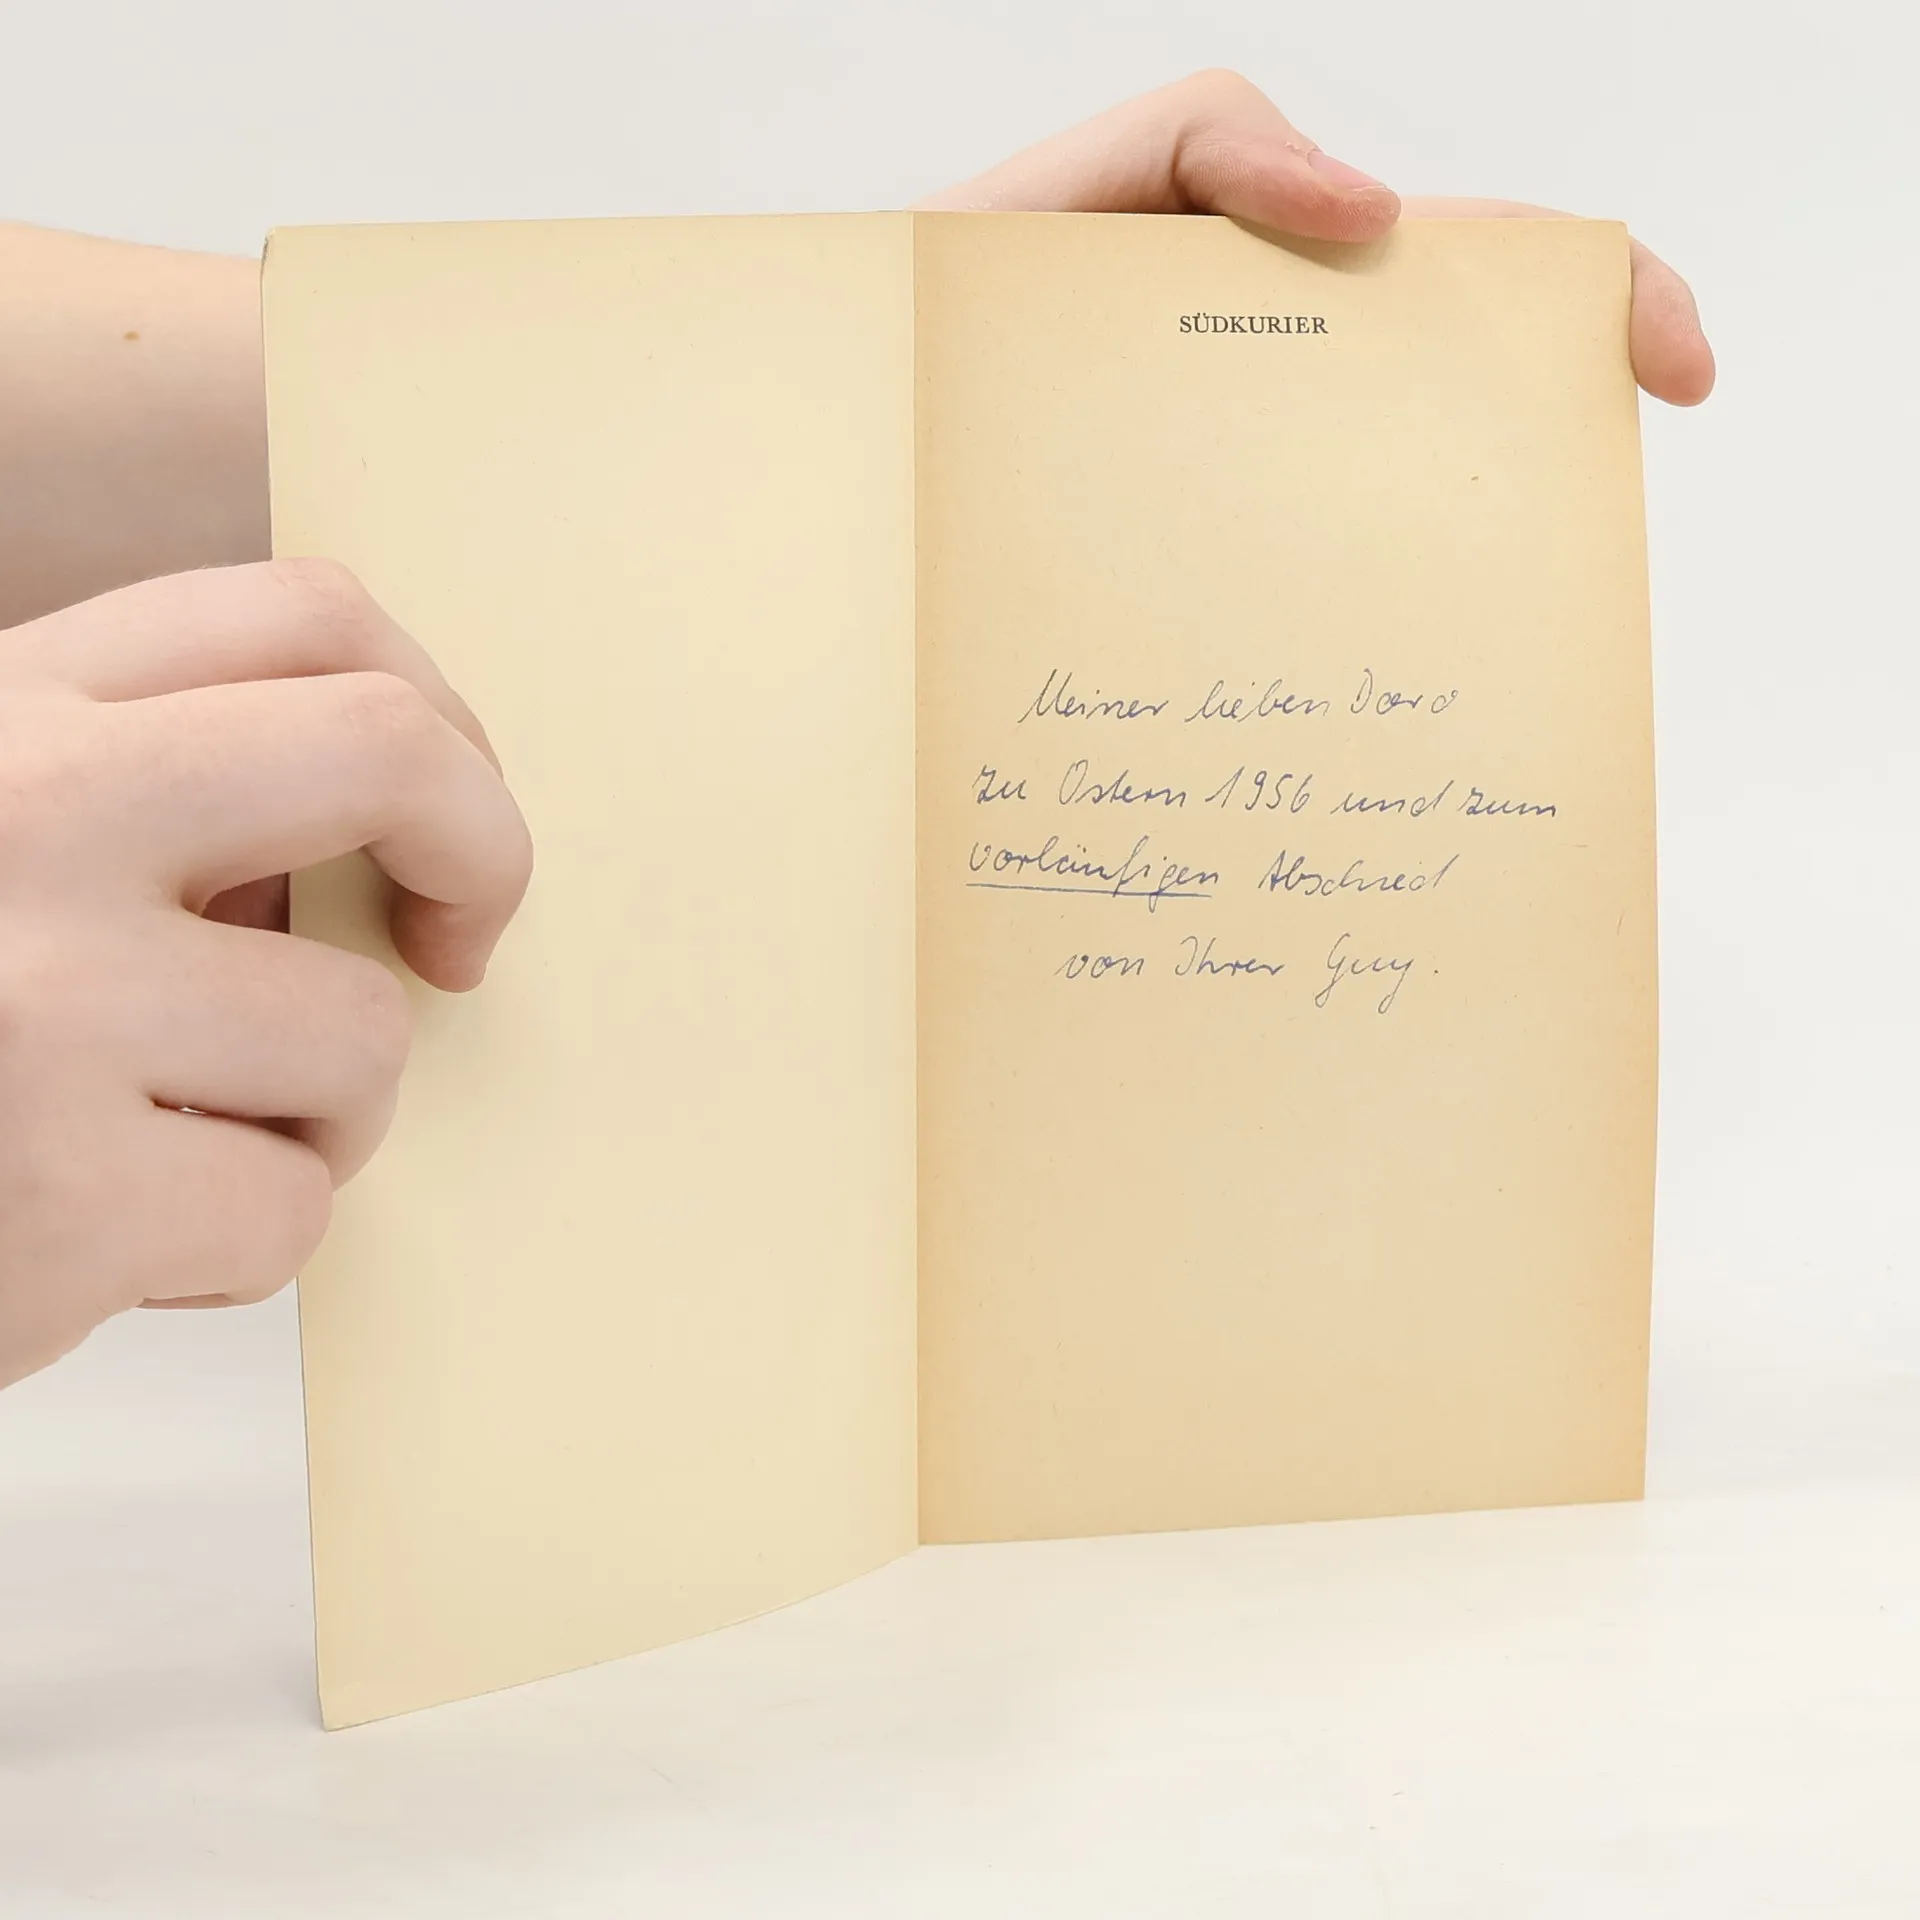 SÜDKURIER
Meiner lieben Doro
zu Ostern 1956 und zum
vorläufigen Abschied
von Ihrer Guy.